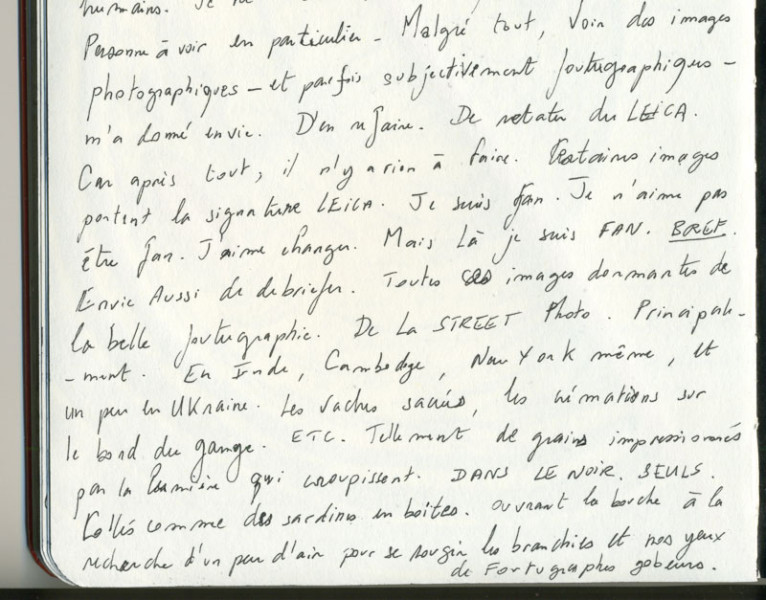 humains. Je ne
Personne à voir en particulier - Malgré tout, Voir des images
photographiques - et parfois subjectivement foutugraphiques -
m'a donné envie. D'en refaire. De retater du LEICA.
Car après tout, il n'y a rien à faire. Certaines images
portent la signature LEICA. Je suis fan. Je n'aime pas
être fan. J'aime changer. Mais Là je suis FAN. BREF.
Envie Aussi de debriefer. Toutes ces images dormantes de
la belle foutugraphie. De La STREET Photo. Principale-
-ment. En Inde, Cambodge, New York même, et
un peu en UKraine. Les Vaches sacrés, les crémations sur
le bord du gange. ETC. Tellement de grains impressionnés
par la Lumière qui croupissent. DANS LE NOIR. SEULS.
Collés comme des sardines en boites. ouvrant la bouche à la
recherche d'un peu d'air pour se rougir les branchies et nos yeux
de Fortugraphes gobeurs.